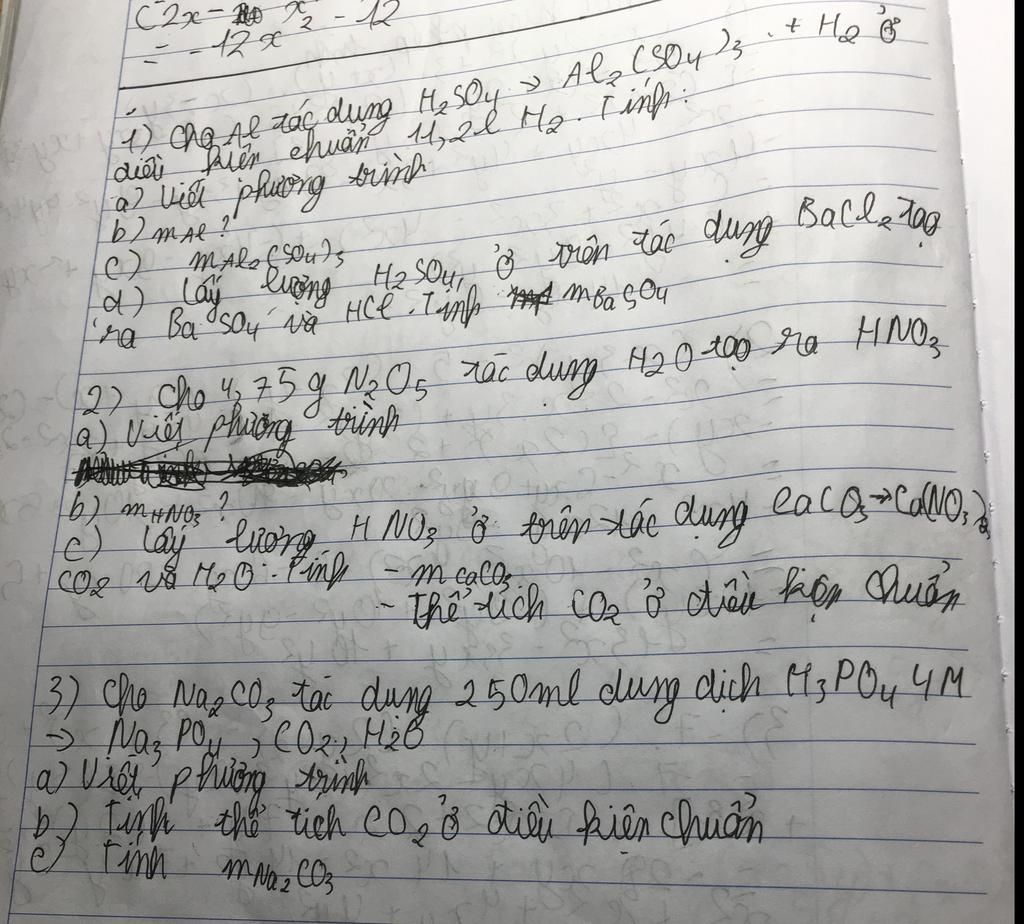 (2x - x² - 12
= -12x
1) Cho Al tác dụng H₂SO₄ → Al₂(SO₄)₃ + H₂ ở
điều kiện chuẩn 11,2l H₂. Tính:
a) Viết phương trình
b) mAl?
c) mAl₂(SO₄)₃
d) Lấy lượng H₂SO₄, ở trên tác dụng BaCl₂ tạo
ra BaSO₄ và HCl. Tính mBaSO₄
2) Cho 4,75g N₂O₅ tác dụng H₂O tạo ra HNO₃
a) Viết phương trình
b) mHNO₃?
c) Lấy lượng HNO₃ ở trên tác dụng CaCO₃→Ca(NO₃)₂
CO₂ và H₂O. Tính - mCaCO₃
- Thể tích CO₂ ở điều kiện chuẩn
3) Cho Na₂CO₃ tác dụng 250ml dung dịch H₃PO₄ 4M
→ Na₃PO₄, CO₂, H₂O
a) Viết phương trình
b) Tính thể tích CO₂ ở điều kiện chuẩn
c) Tính mNa₂CO₃